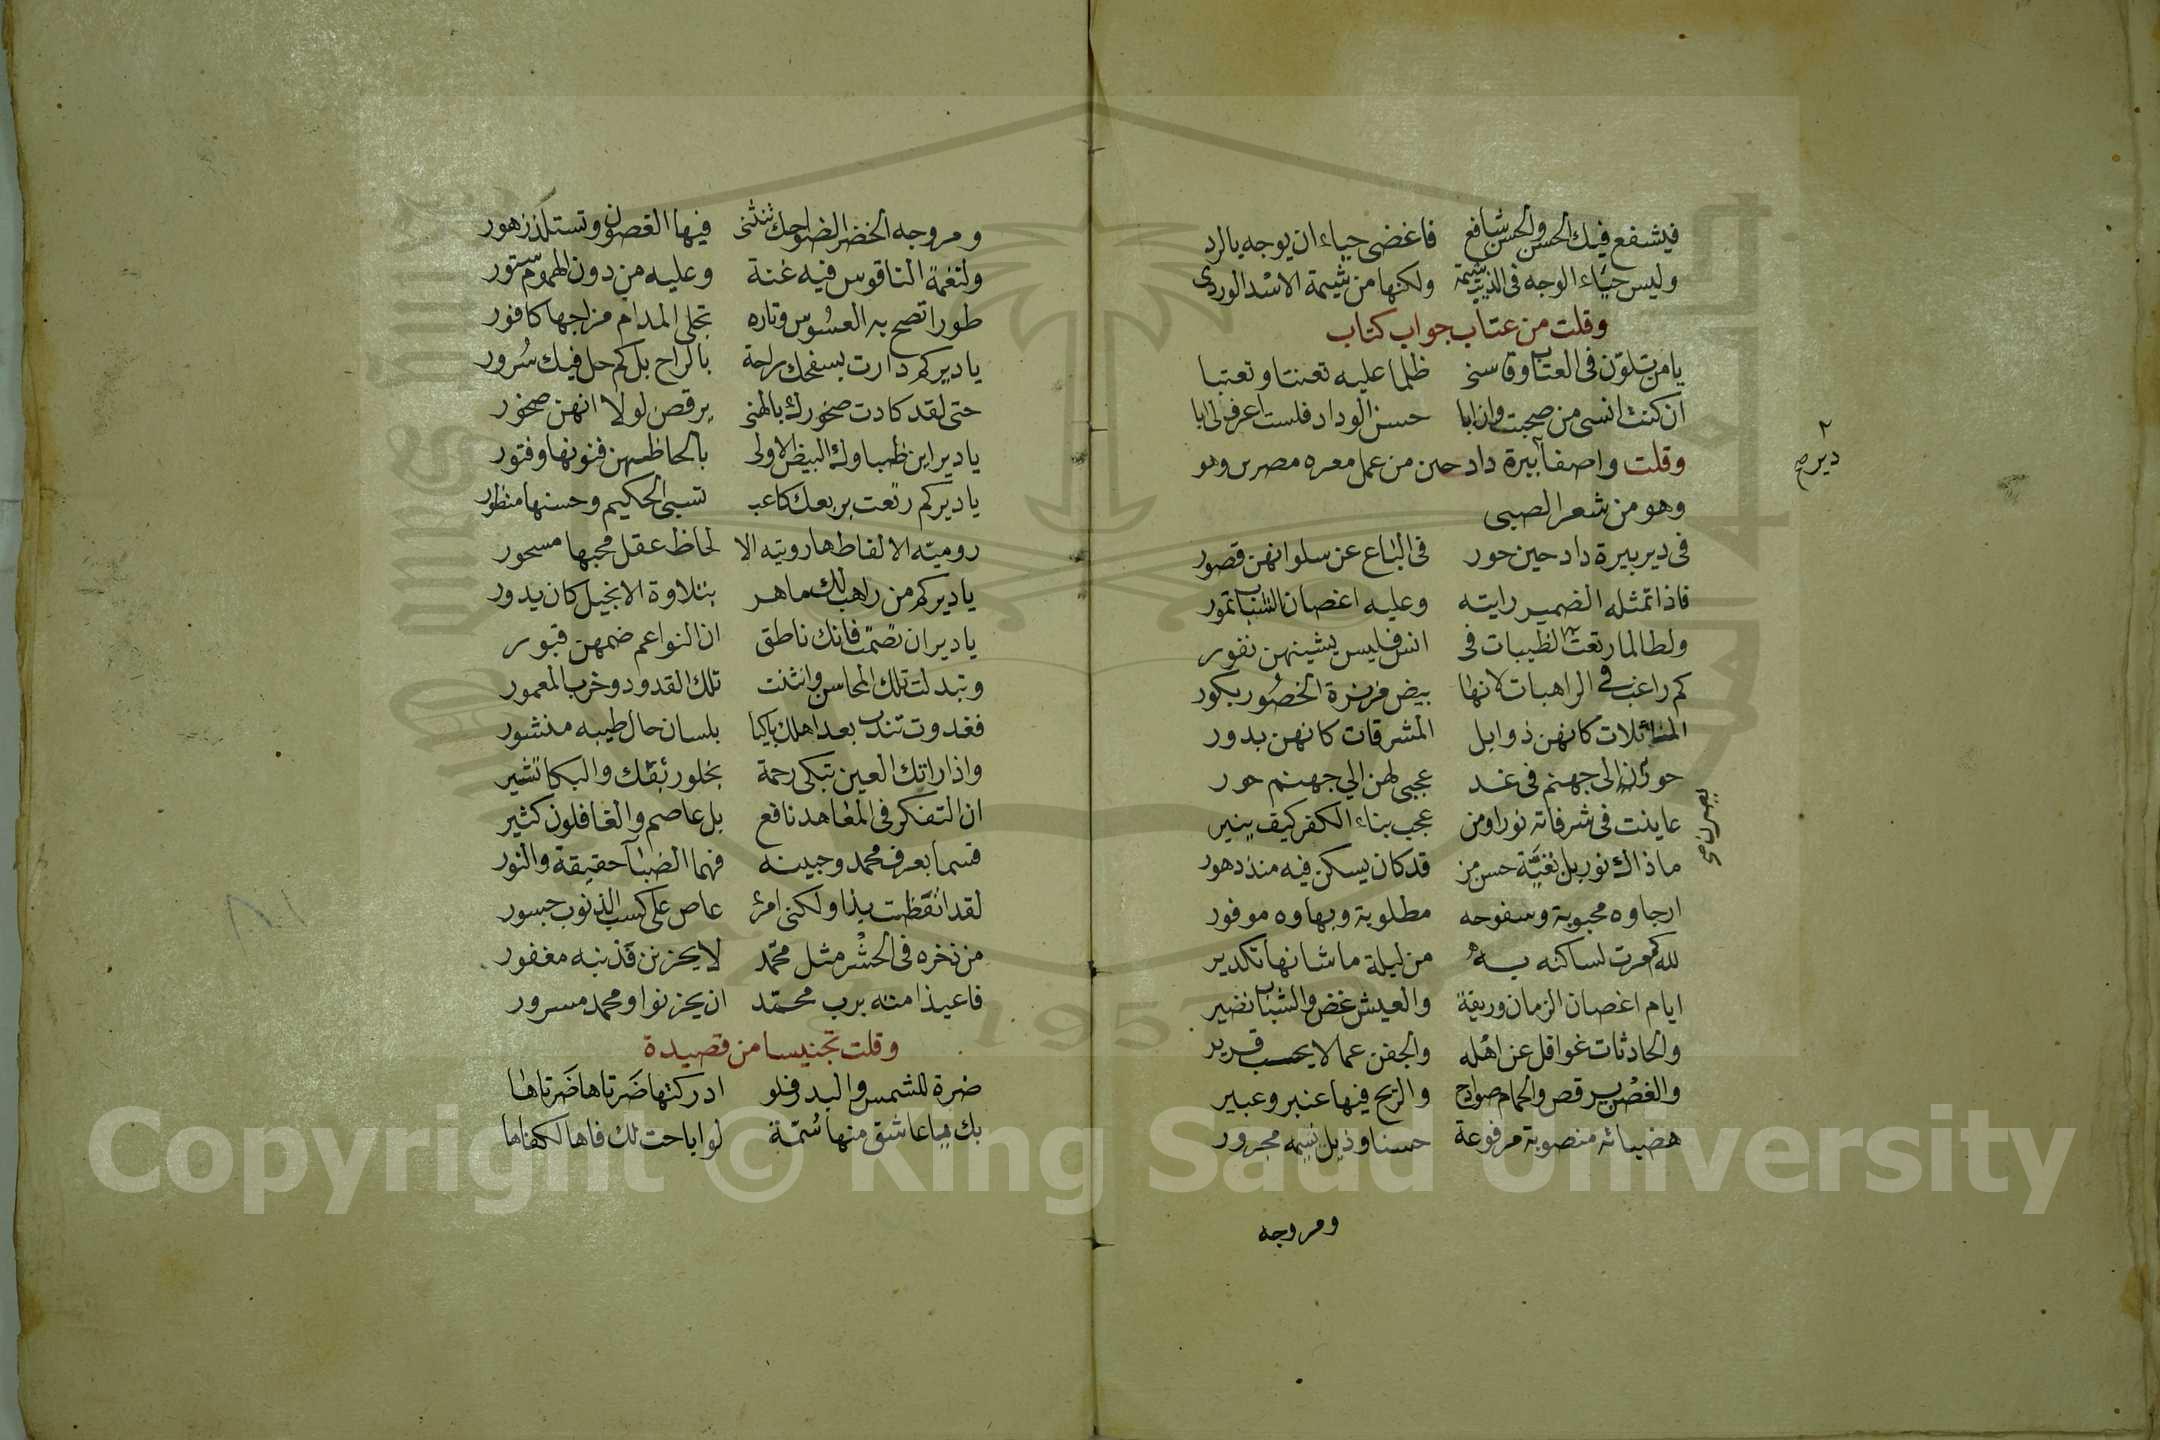 فيشفع فيك الحسن والحسن شافع فاغضى حياء ان يوجه بالرد
وليس حياء الوجه فى الذيب شيمة ولكنها من شيمة الاسد الوردى
وقلت من عتاب جواب كتاب
يا من تلون فى العتاب وقاسنى ظلما عليه تعنتا وتعتبا
ان كنت انسى من صحبت وان ابا حسن الوداد فلست اعرف لى ابا
وقلت واصفا بيرة دادحين من عمل معره مصرين وهو
وهو من شعر الصبى
فى دير بيرة دادحين حور فى الباع عن سلوانهن قصور
فاذا تمثله الضمير رايته وعليه اغصان الشباب تمور
ولطالما رتعت الظبيات فى انس فليس يشينهن نفور
كم راغب فى الراهبات لانها بيض مزنرة الخصور بكور
المائلات كانهن ذوابل المشرقات كانهن بدور
حور الى جهنم فى غد عجبى لهن الي جهنم حور
عاينت فى شرفاته نورا ومن عجب بناء الكفر كيف ينير
ما ذاك نور بل بقية حسن من قد كان يسكن فيه منذ دهور
ارجاوه محبوبة وسفوحه مطلوبة وبهاوه موفور
لله كم مرت لساكنه به من ليلة ما شانها تكدير
ايام اغصان الزمان وريقة والعيش غض والشباب نضير
والحادثات غوافل عن اهله والجفن عما لا يحسب قرير
والغصن يرقص والحمام صوادح والريح فيها عنبر وعبير
هضباته منصوبة مرفوعة حسنا وذيل نسيمه مجرور
ومروجه
دير صح
ومروجه الخضر الضواحك تنثنى فيها الغصون وتستلذ زهور
ولنغمة الناقوس فيه غنة وعليه من دون الهموم ستور
طورا تصح به العسوس وتاره تجلى المدام مزاجها كافور
يا دير كم دارت بسفحك راحة بالراح بل كم حل فيك سرور
حتى لقد كادت صخورك بالمنى يرقصن لولا انهن صخور
يا دير اين ظباوك البيض الاولى بالحاظهن فنونها وفتور
يا دير كم رتعت بربعك كاعب تسبى الحكيم وحسنها منظور
رومية الالفاظ هاروتيه الا لحاظ عقل محبها مسحور
يا دير كم من راهب لك ماهر بتلاوة الانجيل كان يدور
يا دير ان تصمت فانك ناطق ان النواعم ضمهن قبور
وتبدلت تلك المحاسن وانثنت تلك القدود وخرب المعمور
فغدوت تندب بعد اهلك باكيا بلسان حال طيبه منشور
واذا راتك العين تبكى رحمة بخلو ربعك والبكا تشير
ان التفكر فى المعاهد نافع بل عاصم والغافلون كثير
قسما بعرف محمد وجبينه فهما الضيا حقيقة والنور
لقد اتعظت بذا ولكنى امرؤ عاص على كسب الذنوب جسور
من ذخره فى الحشر مثل محمد لا يحزنن فذنبه مغفور
فاعيذ امته برب محمد ان يحزنوا ومحمد مسرور
وقلت تجنيسا من قصيدة
ضرة للشمس والبدر فلو ادركتها ضرتاها ضرتاها
بك يا عاشق منها شمة لو اباحت لك فاها لكفاها